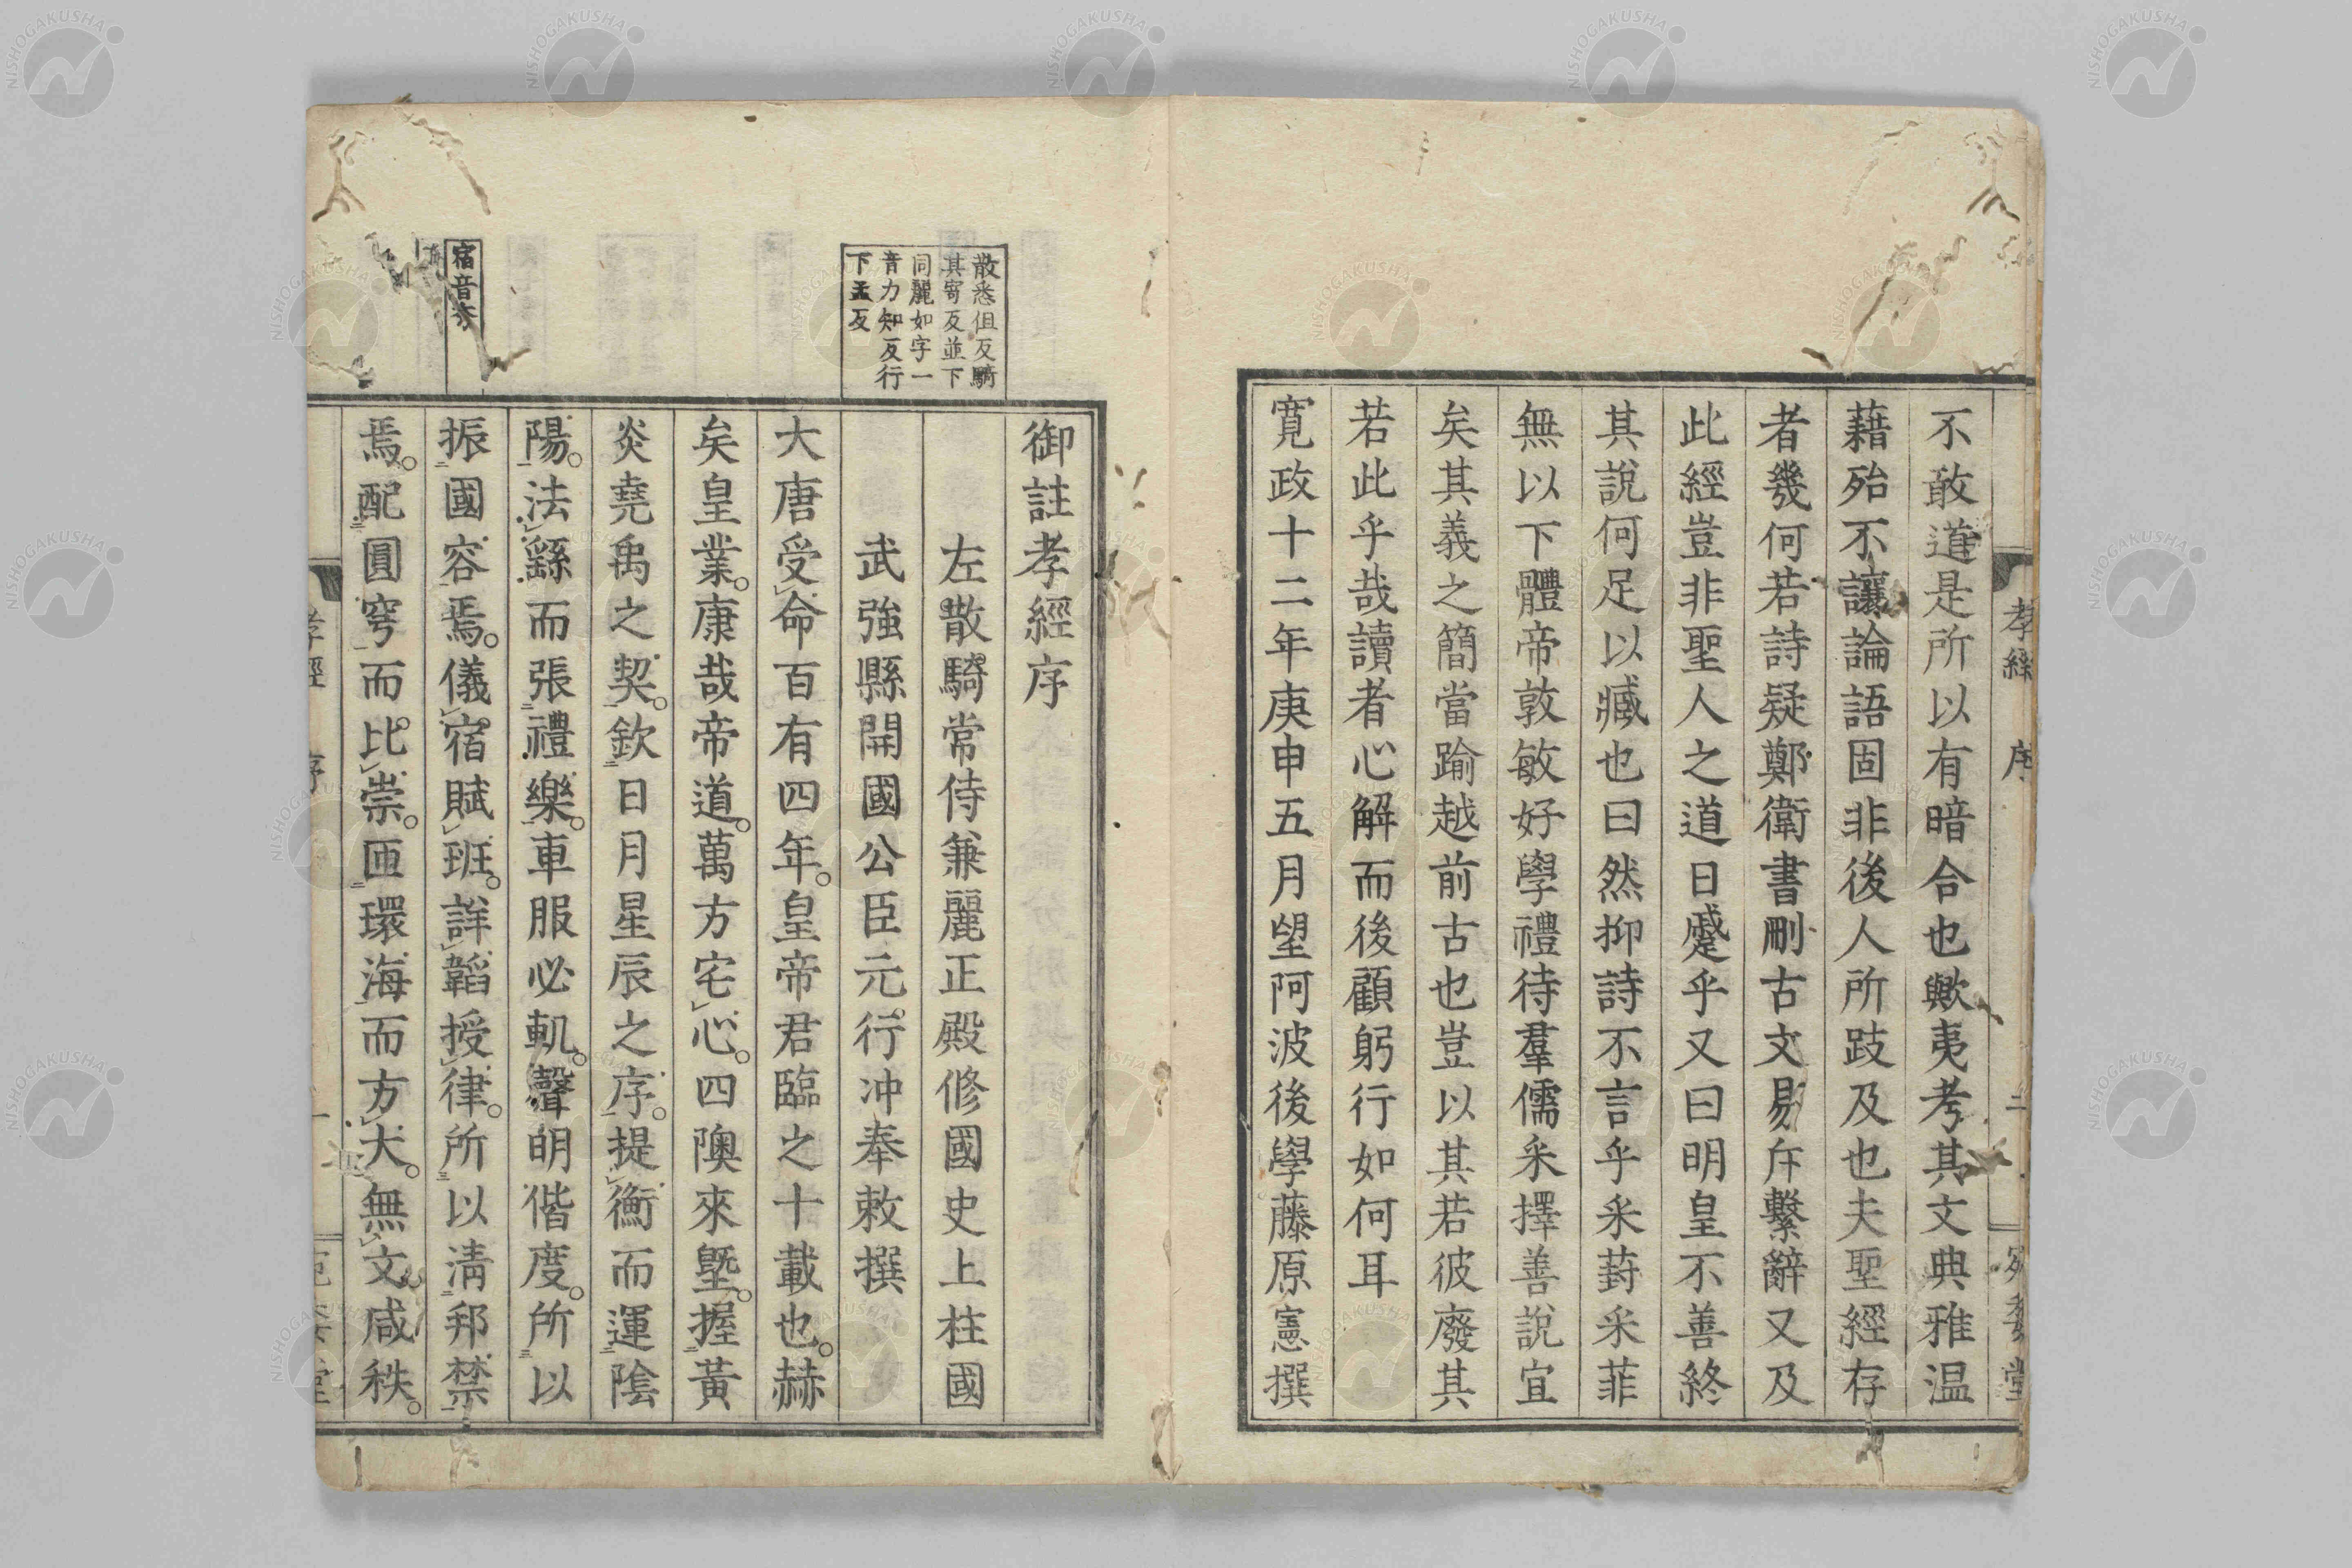 孝經 序
不敢道是所以有暗合也歟夷考其文典雅温
藉殆不讓論語固非後人所跂及也夫聖經存
者幾何若詩疑鄭衛書刪古文易斥繫辭又及
此經豈非聖人之道日蹙乎又曰明皇不善終
其說何足以臧也曰然抑詩不言乎采葑采菲
無以下體帝敦敏好學禮待羣儒采擇善說宜
矣其義之簡當踰越前古也豈以其若彼廢其
若此乎哉讀者心解而後顧躬行如何耳
寛政十二年庚申五月望阿波後學藤原憲撰
散悉但反騎
其寄反並下
同麗如字一
音力知反行
下孟反
御註孝經序
左散騎常侍兼麗正殿修國史上柱國
武強縣開國公臣元行冲奉敕撰
大唐受命百有四年皇帝君臨之十載也赫
矣皇業康哉帝道萬方宅心四隩來曁握黃
炎堯禹之契欽日月星辰之序提衡而運陰
陽法繇而張禮樂車服必軌聲明偕度所以
宿音秀
振國容焉儀宿賦班詳韜授律所以淸邦禁
焉配圓穹而比崇匝環海而方大無文咸秩
孝經 序
NISHOGAKUSHA